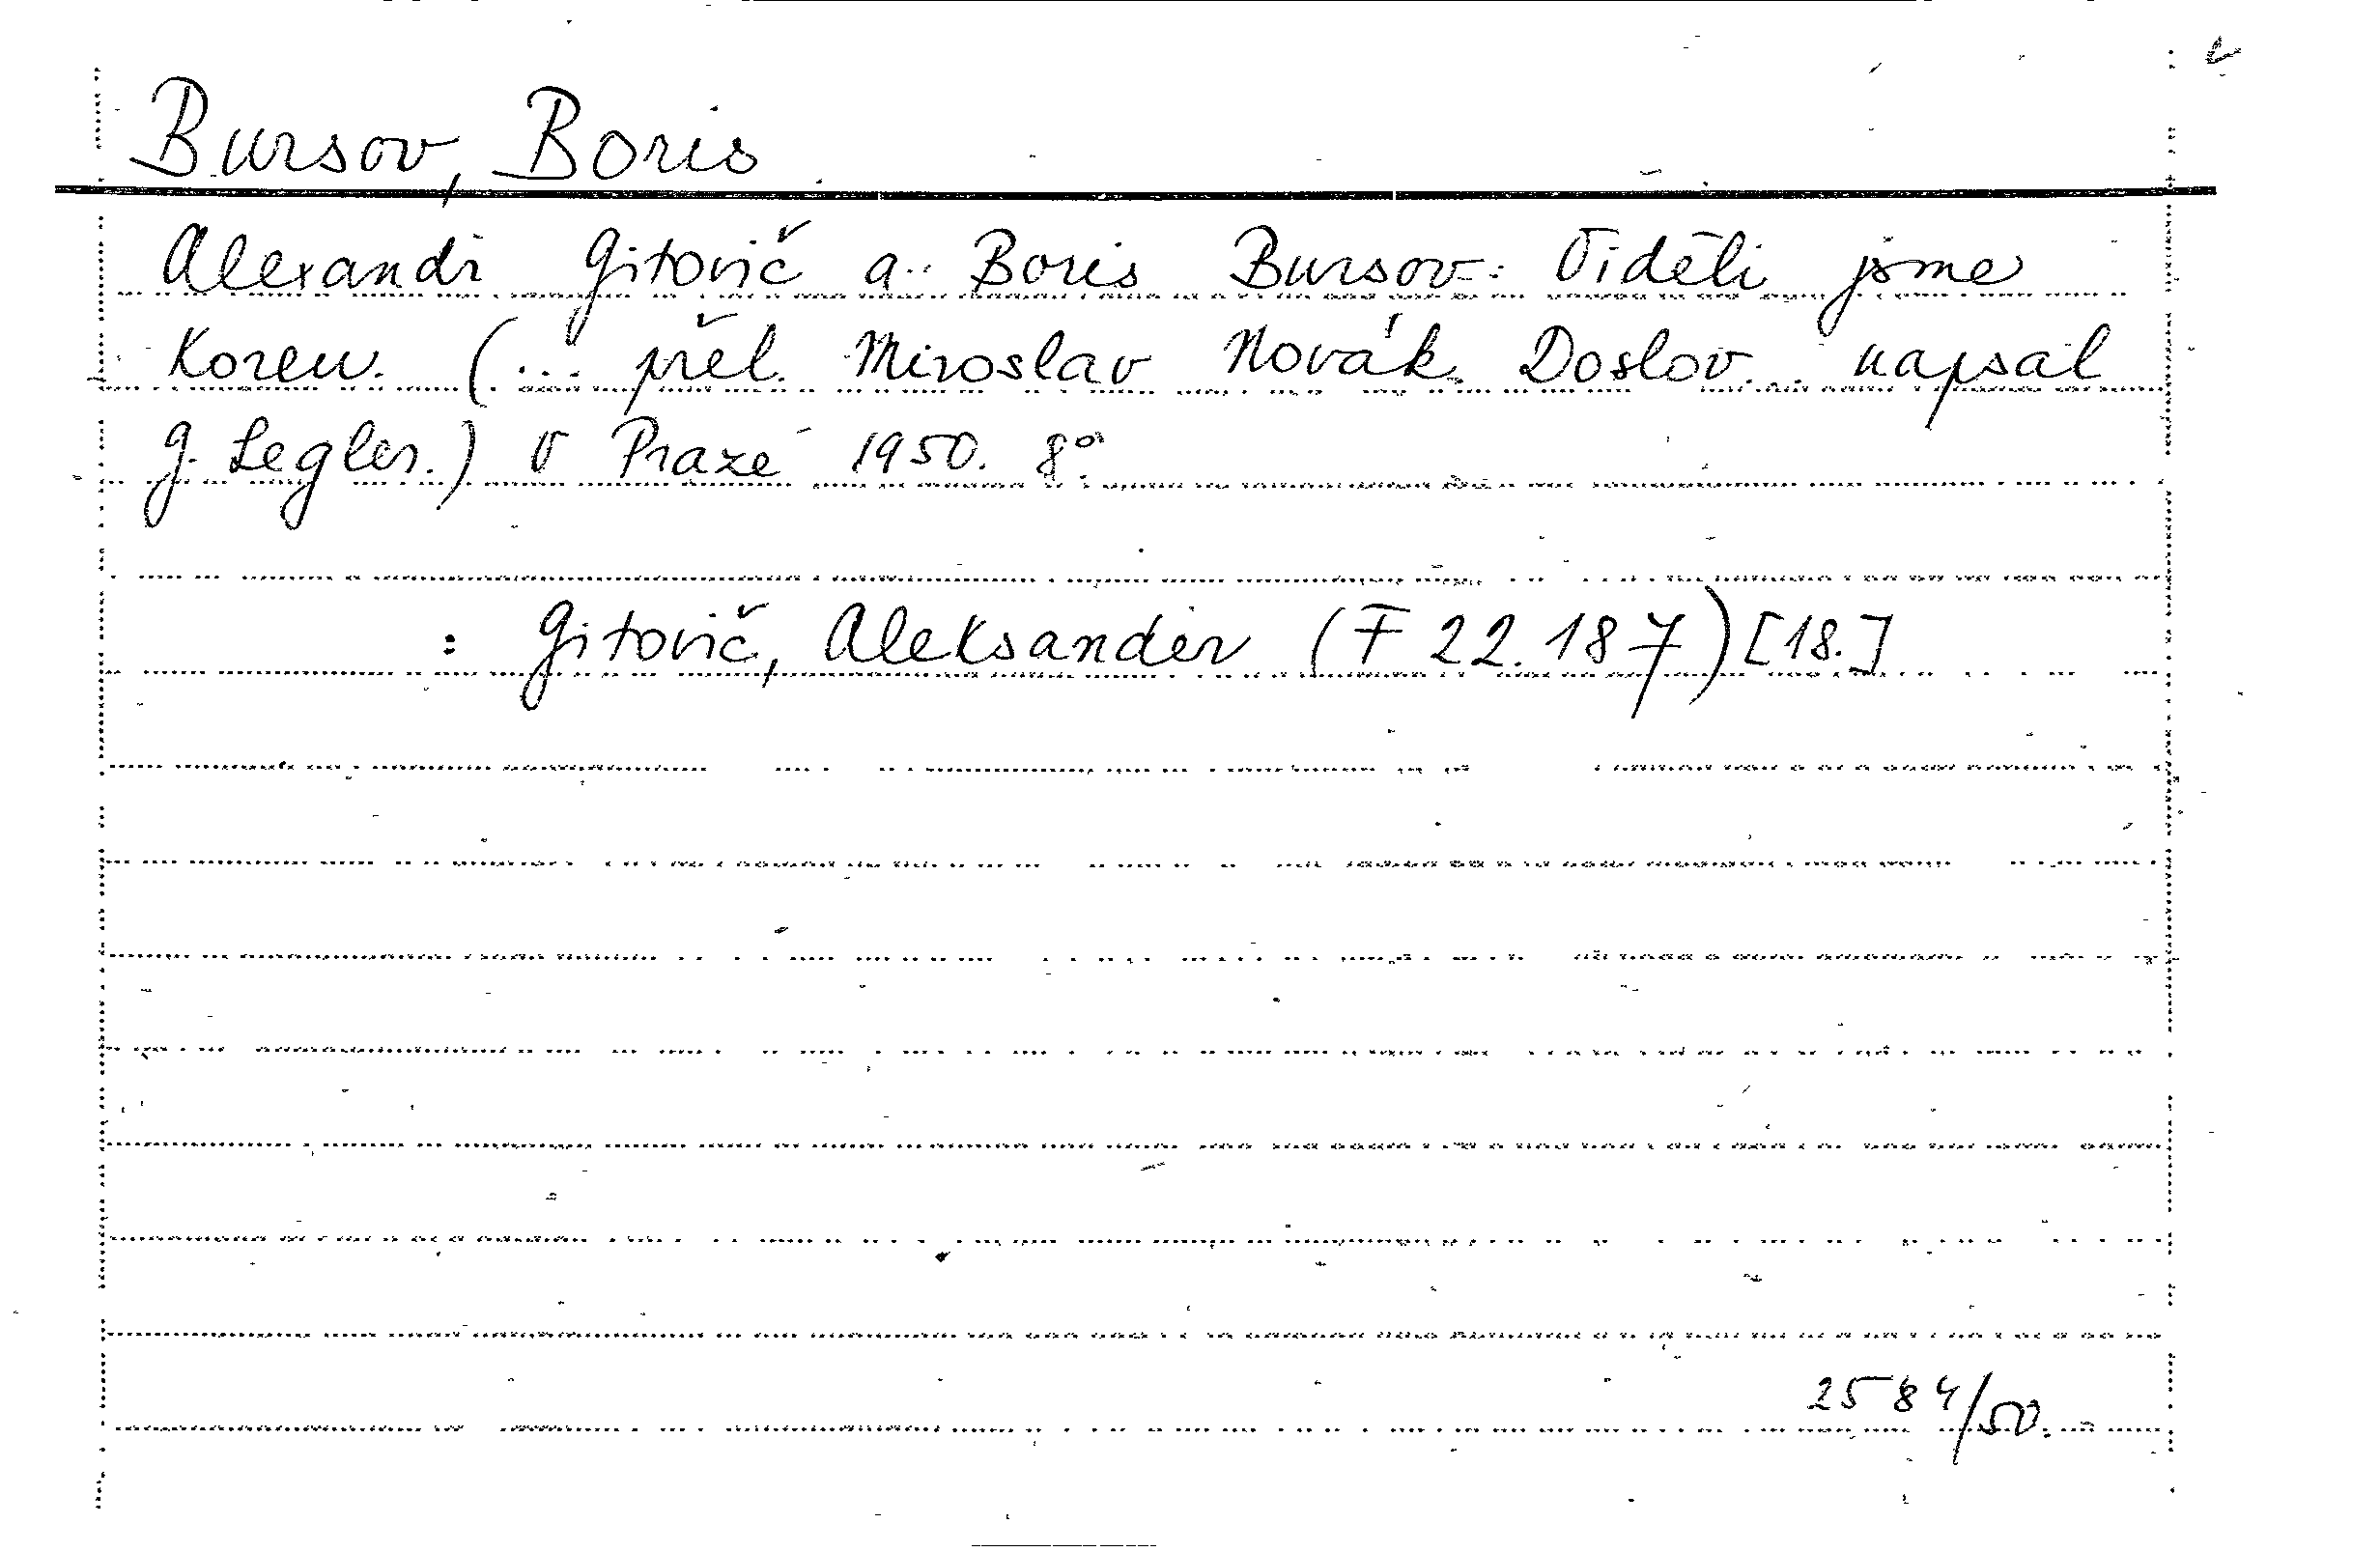 Bursov, Boris
Alexandr Gitovič a Boris Bursov: Viděli jsme
Koreu. (... přel. Miroslav Novák. Doslov napsal
G. Legler.) V Praze 1950. 8°.
: Gitovič, Aleksander (F 22.187) [18.]
2584/50.